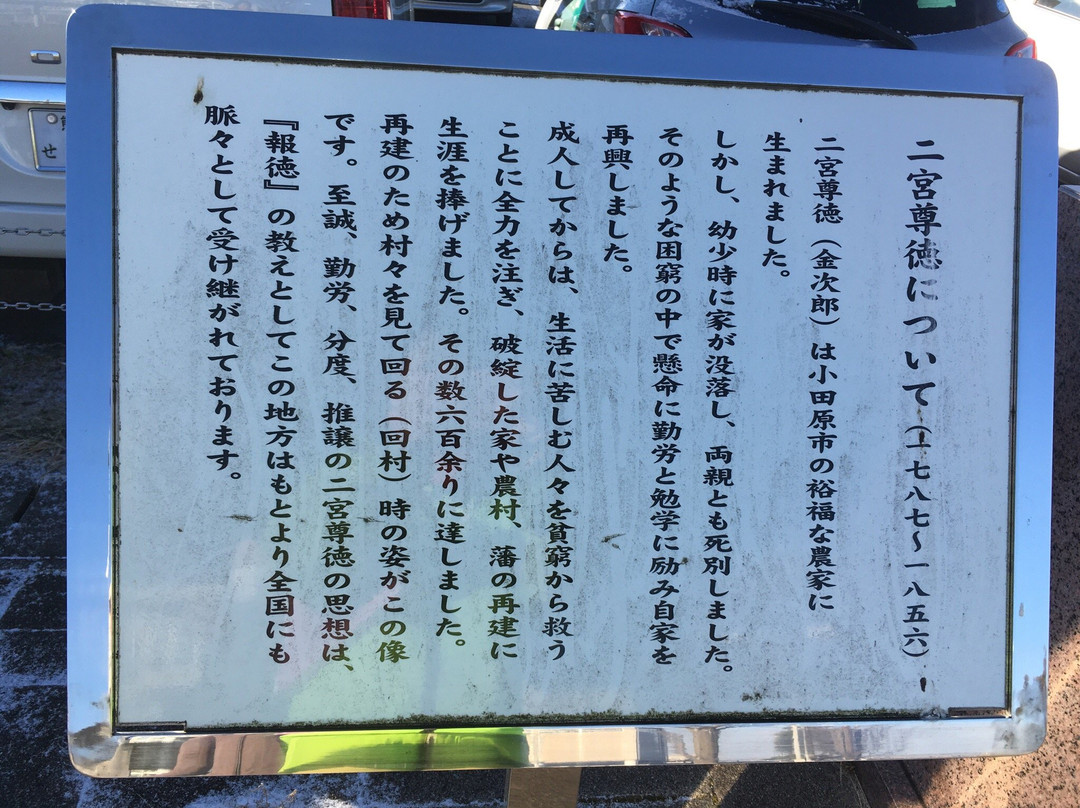 二宮尊徳について(一七八七〜一八五六)
二宮尊徳(金次郎)は小田原市の裕福な農家に
生まれました。
しかし、幼少時に家が没落し、両親とも死別しました。
そのような困窮の中で懸命に勤労と勉学に励み自家を
再興しました。
成人してからは、生活に苦しむ人々を貧窮から救う
ことに全力を注ぎ、破綻した家や農村、藩の再建に
生涯を捧げました。その数六百余りに達しました。
再建のため村々を見て回る(回村)時の姿がこの像
です。至誠、勤労、分度、推譲の二宮尊徳の思想は、
『報徳』の教えとしてこの地方はもとより全国にも
脈々として受け継がれております。
せ